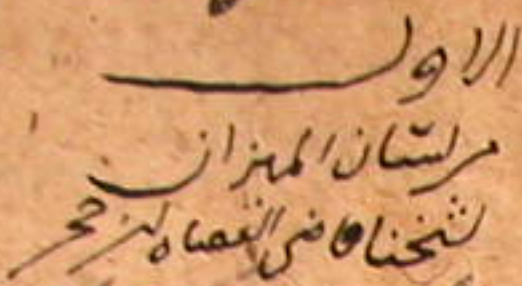 الاول
من لسان الميزان
لشيخنا قاضي القضاه ابن حجر